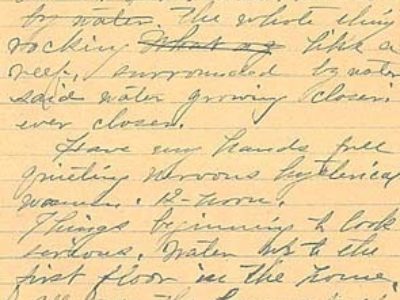 by water. The whole thing
rocking What a like a
reef, surrounded by water
said water growing closer.
ever closer.
Have my hands full
quieting nervous hysterical
women. 12-noon.
Things beginning to look
serious. Water up to the
first floor in the home,